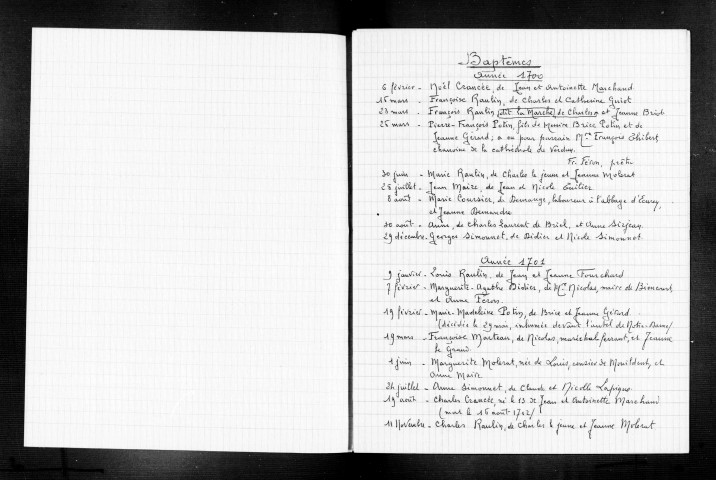 Baptêmes
Année 1700
6 février - Noël Crancée, de Jean et Antoinette Marchand
15 mars - Françoise Raulin, de Charles et Catherine Guiot
23 mars - François Raulin, dit la Marche, de Charles et Jeanne Briot
25 mars - Pierre-François Potin, fils de Messire Brice Potin, et de
Jeanne Gérard ; a eu pour parrain Mre François Thibert
chanoine de la cathédrale de Verdun.
Fr. Féron, prêtre
30 juin - Marie Raulin, de Charles le jeune et Jeanne Molerat
25 juillet - Jean Maire, de Jean et Nicole
8 août - Marie Coursier, de laboureur à l'abbaye d'Ecurey,
et Jeanne Demandre
30 août - Anne, de Charles Laurent de Briel, et Anne Sirjean
29 décembre - Georges Simonnet, de Didier et Nicole Simonnet
Année 1701
9 janvier - Louis Raulin, de Jean et Jeanne Fourchard
7 février - Marguerite-Agathe Didier, de Mre Nicolas, maire de
et Anne Féron.
19 février - Marie-Madeleine Potin, de Brice et Jeanne Gérard.
(décédée le 29 mai, inhumée devant l'autel de Notre-Dame)
19 mars - Françoise Marteau, de Nicolas, maréchal ferrant, et Jeanne
le Grand
1 juin - Marguerite Molerat, née de Louis, et
Anne Maire
24 juillet - Anne Simonnet, de Claude et Nicolle Lapique
19 août - Charles Crancée, né le 13 de Jean et Antoinette Marchand
(mort le 16 août 1702)
11 Novembre - Charles Raulin, de Charles le jeune et Jeanne Molerat